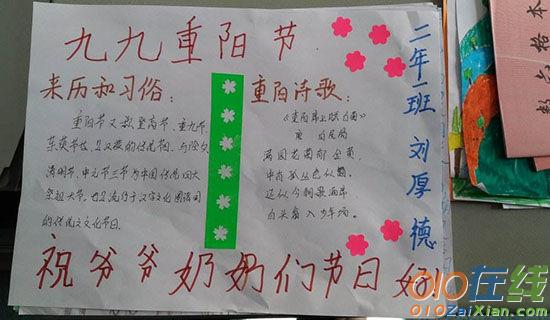 九九重阳节
来历和习俗：
重阳节又称登高节、重九节、
茱萸节也是汉族的传统节日、与除夕、
清明节、中元节三节为中国传统四大
祭祖大节。也是流行于汉字文化圈诸国
的传统文化节日。
重阳诗歌：
《重阳席上赋白菊》
唐 白居易
满园花菊郁金黄，
中有孤丛色似霜。
还似今朝歌酒席
白头翁入少年场。
二年一班 刘厚德
祝爷爷奶奶们节日好
数
格本
010在线
010ZaiXian.com